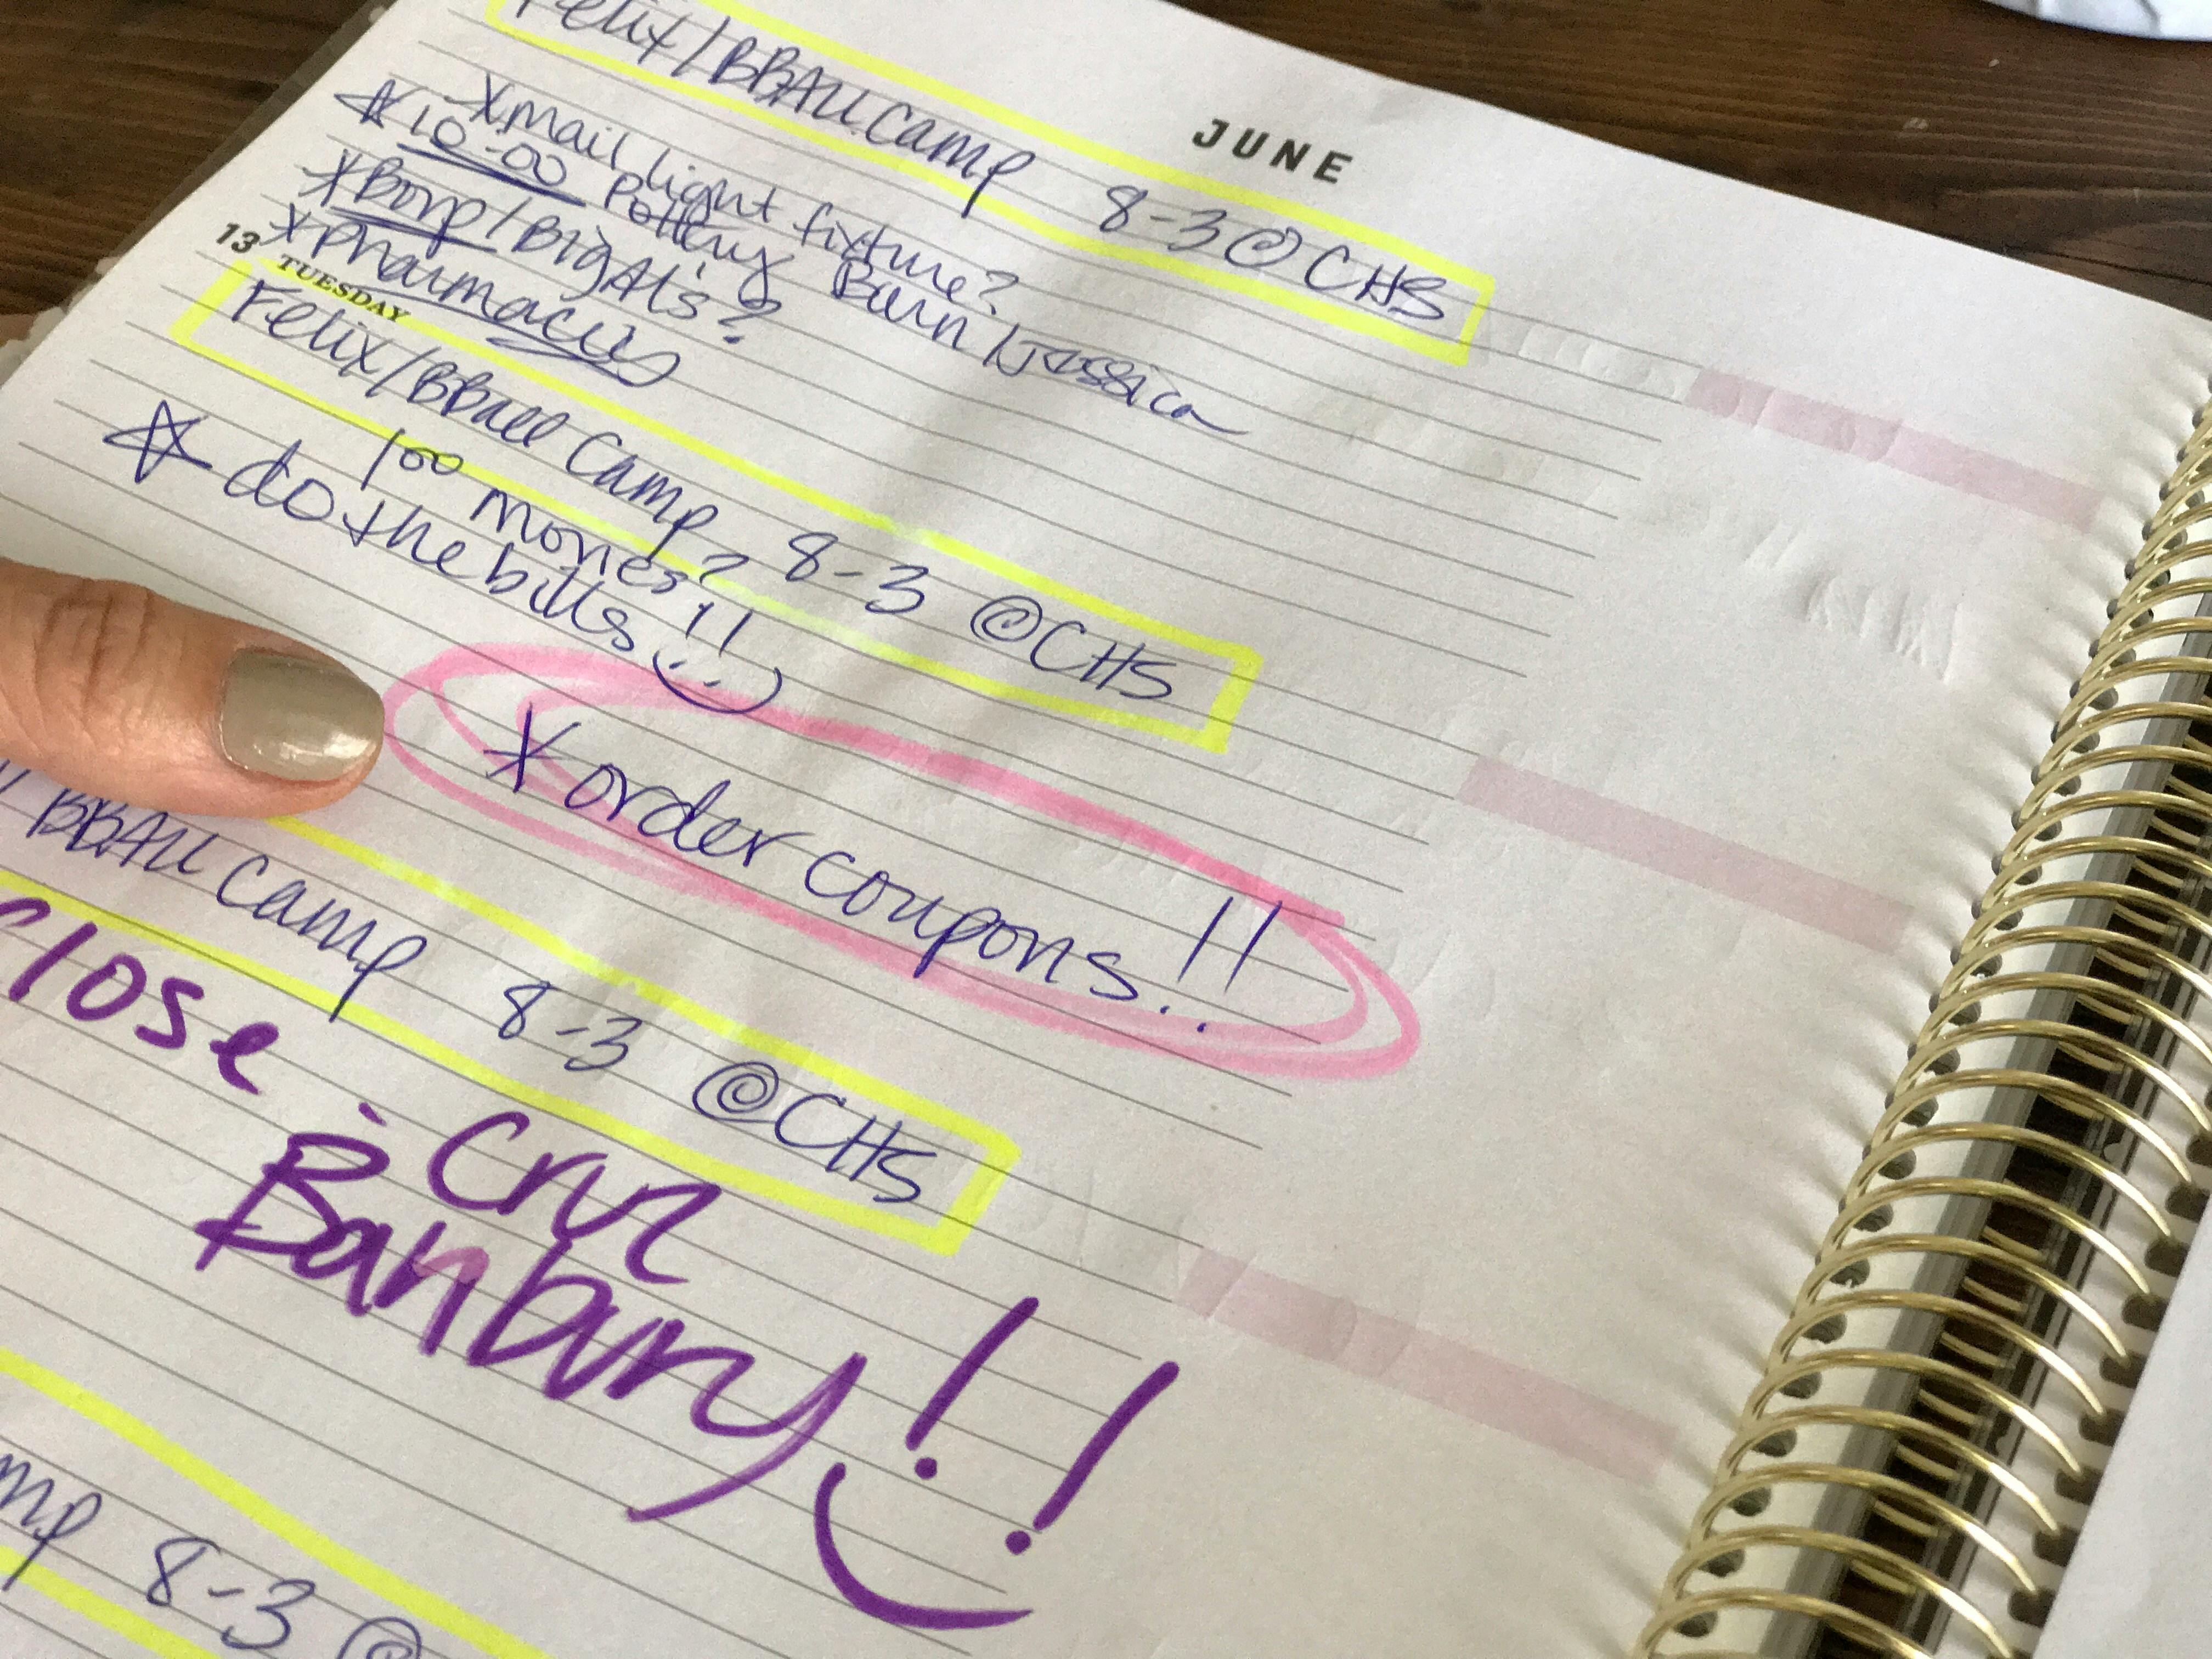 JUNE
Felix/BBALL Camp 8-3 @ CHS
*mail light fixture?
☆ 10:00 Pottery Barn / Jessica
* / Big Al's?
* Pharmacies
13 TUESDAY
Felix/BBall Camp 8-3 @CHS
100 monies?
☆ do the bills!!
*order coupons!!
BBALL camp 8-3 @CHS
Close
Cruz
Banbury!!
mp 8-3 @